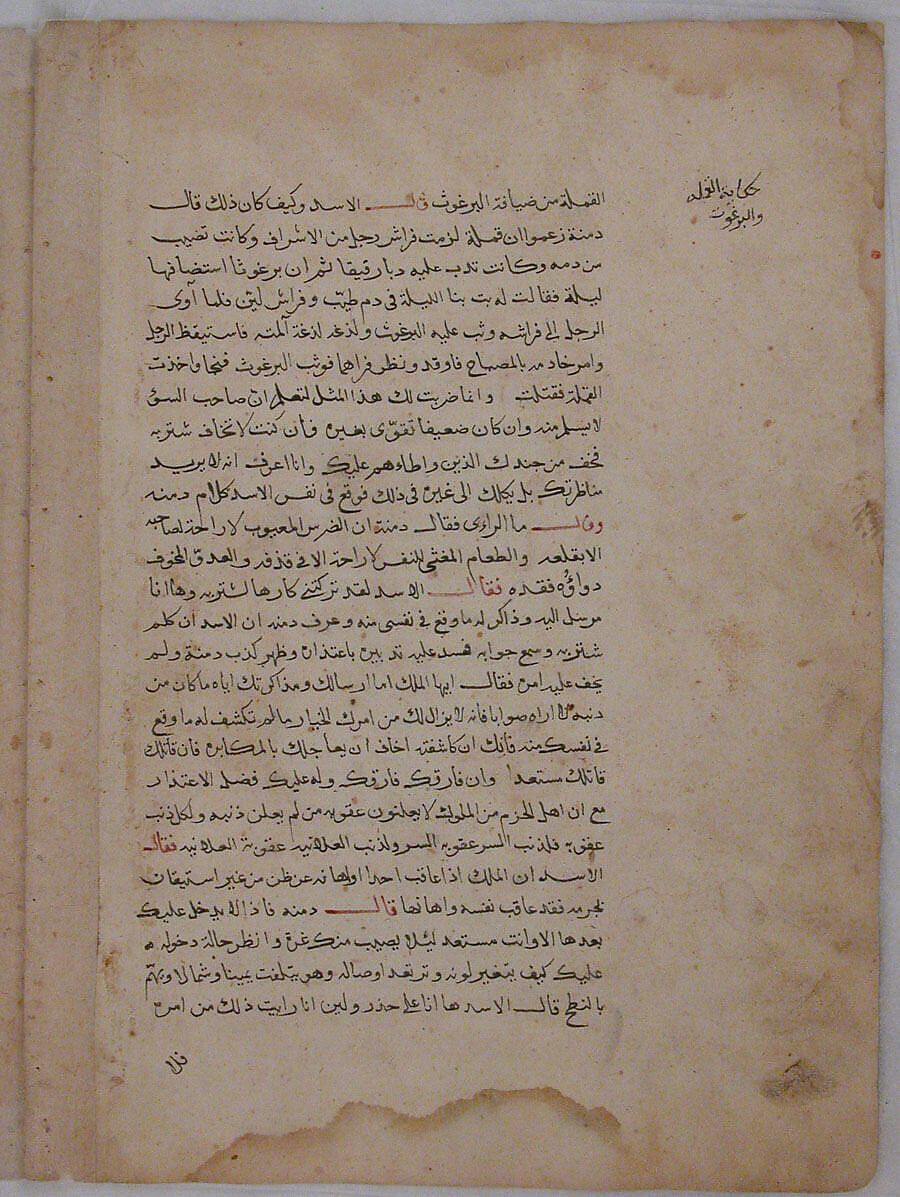 حكاية القمله
والبرغوث
القملة من ضيافة البرغوث قال الاسد وكيف كان ذلك قال
دمنة زعموا ان قملة لزمت فراش رجل من الاشراف وكانت تصيب
من دمه وكانت تدب عليه دبا رقيقا ثم ان برغوثا استضافها
ليلة فقالت له بت بنا الليلة في دم طيب وفراش لين فلما آوى
الرجل الى فراشه وثب عليه البرغوث ولذغه لذغة آلمته فاستيقظ الرجل
وامر خادمه بالمصباح فاوقد ونظر فراهما فوثب البرغوث فنجا واخذت
القملة فقتلت وانما ضربت لك هذا المثل لتعلم ان صاحب السؤ
لا يسلم منه وان كان ضعيفا تقوى بغيره فان كنت لا تخاف شتربه
فخف من جندك الذين واطاءهم عليك وانا اعرف انه لا يريد
مناظرتك بل يكلك الى غيره في ذلك فوقع في نفس الاسد كلام دمنه
وقال ما الراءى فقال دمنة ان الضرس المعيوب لا راحة لصاحبه
الا بقلعه والطعام المغثى للنفس لا راحة الا في قذفه والعدو المخوف
دواؤه فقده فقال الاسد لقد تركتني كارها لشتربه وها انا
مرسل اليه وذاكر له ما وقع في نفسي منه وعرف دمنه ان الاسد ان كلم
شتربه وسمع جوابه فسد عليه تدبيره باعتذاره وظهر كذب دمنة ولم
يخف عليه امره فقال ايها الملك اما ارسالك ومذاكرتك اياه ما كان من
ذنبه لا اراه صوابا فانه لا يزال لك من امرك الخيار ما لم تكشف له ما وقع
في نفسك منه فانك ان كاشفته اخاف ان يعاجلك بالمكابره فان قاتلك
قاتلك مستعدا وان فارقك فارقك وله عليك فضل الاعتذار
مع ان اهل الحزم من الملوك لا يعلنون عقوبه من لم يعلن ذنبه ولكل ذنب
عقوبه فلذنب السر عقوبه السر ولذنب العلانيه عقوبة العلانيه فقال
الاسد ان الملك اذا عاقب احدا او اهانه عن ظن من غير استيقان
بجرمه فقد عاقب نفسه واهانها قال دمنه فاذا لا يدخل عليك
بعدها الا وانت مستعد ليلا يصيب منك غرة وانظر حالة دخوله
عليك كيف يتغير لونه وترتعد اوصاله وهو يتلفت يمينا وشمالا ويهم
بالنطح قال الاسد ها انا على حذر ولين انا رايت ذلك من امره
فلا